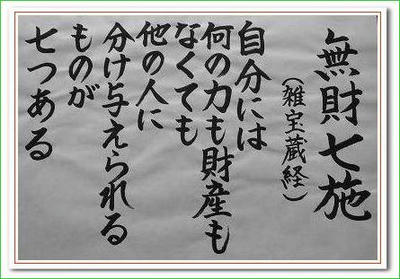 無財七施
（雑宝蔵経）
自分には
何の力も財産も
なくても
他の人に
分け与えられる
ものが
七つある